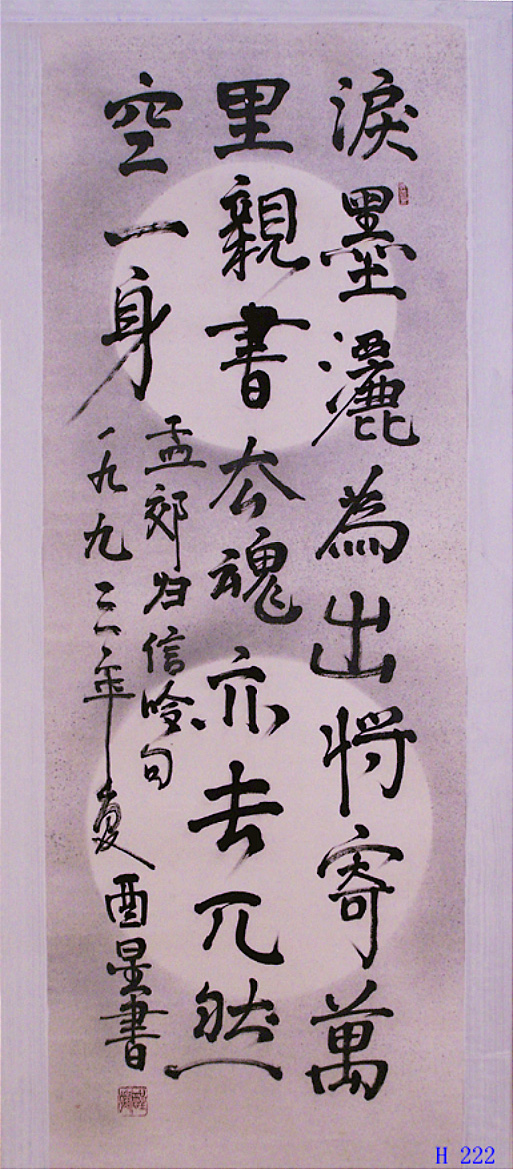 淚墨灑為出将寄萬
里親書厺魂亦去兀然
空一身
孟郊归信吟句
一九九三年夏酉星書
H 222